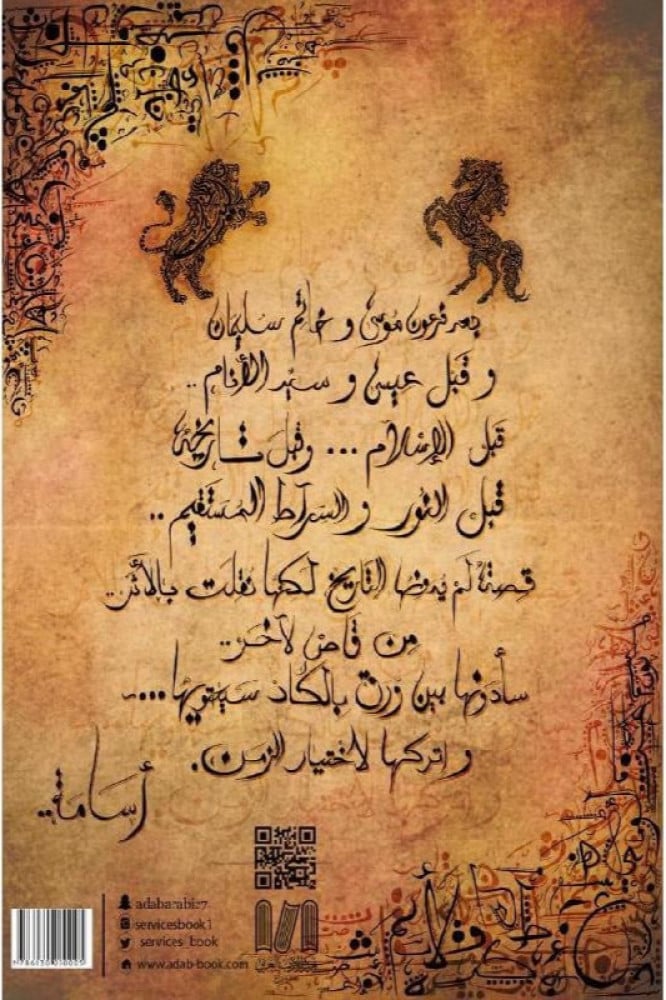 بعد فرعون موسى و خاتم سليمان
و قبل عيسى و سيد الأنام..
قبل الإسلام ... وقبل تاريخه
قبل النور و السراط المستقيم ..
قصة لم يدونها التاريخ لكنها نقلت بالأثر..
من قاص لآخر..
سأدونها بين ورق بالكاد سيحتويها...~
و اتركها لاختيار الزمن.
أسامة..
adabarabic7
servicesbook1
services_book
www.adab-book.com